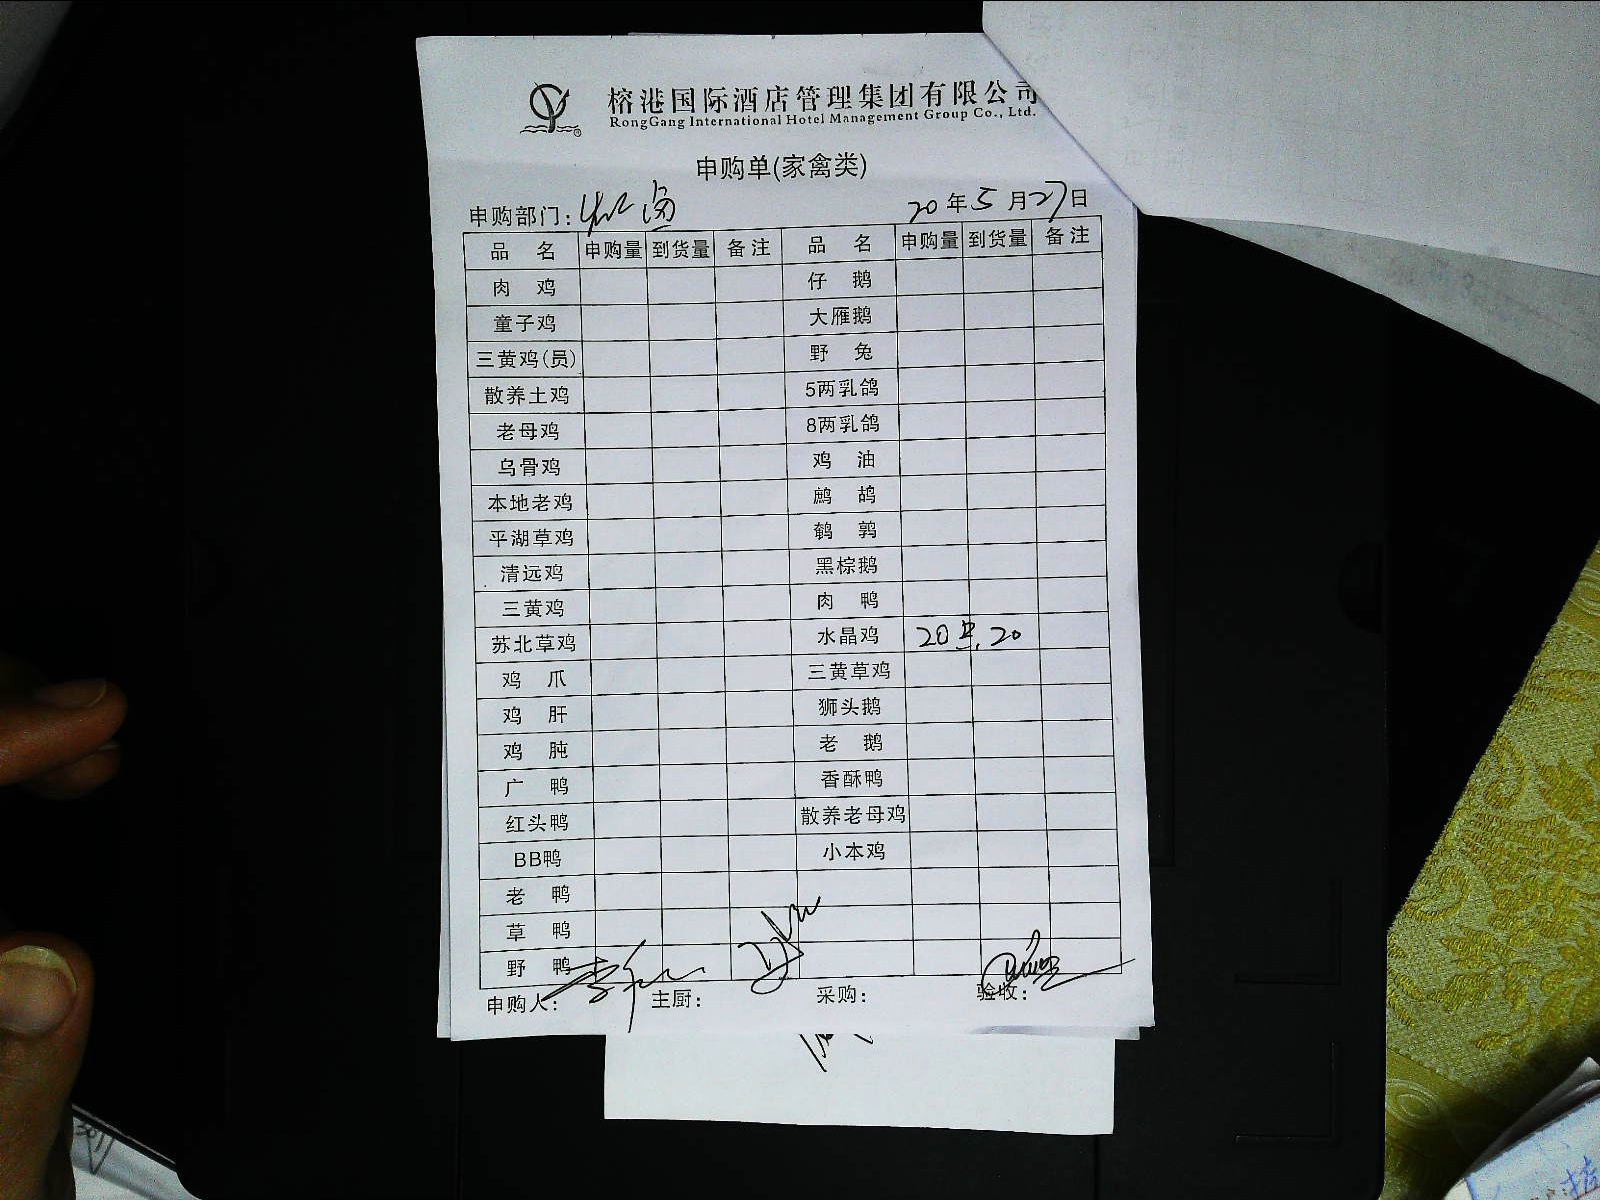 榕港国际酒店管理集团有限公司
RongGang International Hotel Management Group Co., Ltd.
申购单(家禽类)
申购部门: 20年5月27日
品 名 申购量 到货量 备注 品 名 申购量 到货量 备注
肉 鸡 仔 鹅
童子鸡 大雁鹅
三黄鸡(员) 野 兔
散养土鸡 5两乳鸽
老母鸡 8两乳鸽
乌骨鸡 鸡 油
本地老鸡 鹧 鸪
平湖草鸡 鹌 鹑
清远鸡 黑棕鹅
三黄鸡 肉 鸭
苏北草鸡 水晶鸡 20 20
鸡 爪 三黄草鸡
鸡 肝 狮头鹅
鸡 肫 老 鹅
广 鸭 香酥鸭
红头鸭 散养老母鸡
BB鸭 小本鸡
老 鸭
草 鸭
野 鸭
申购人: 主厨: 采购: 验收: